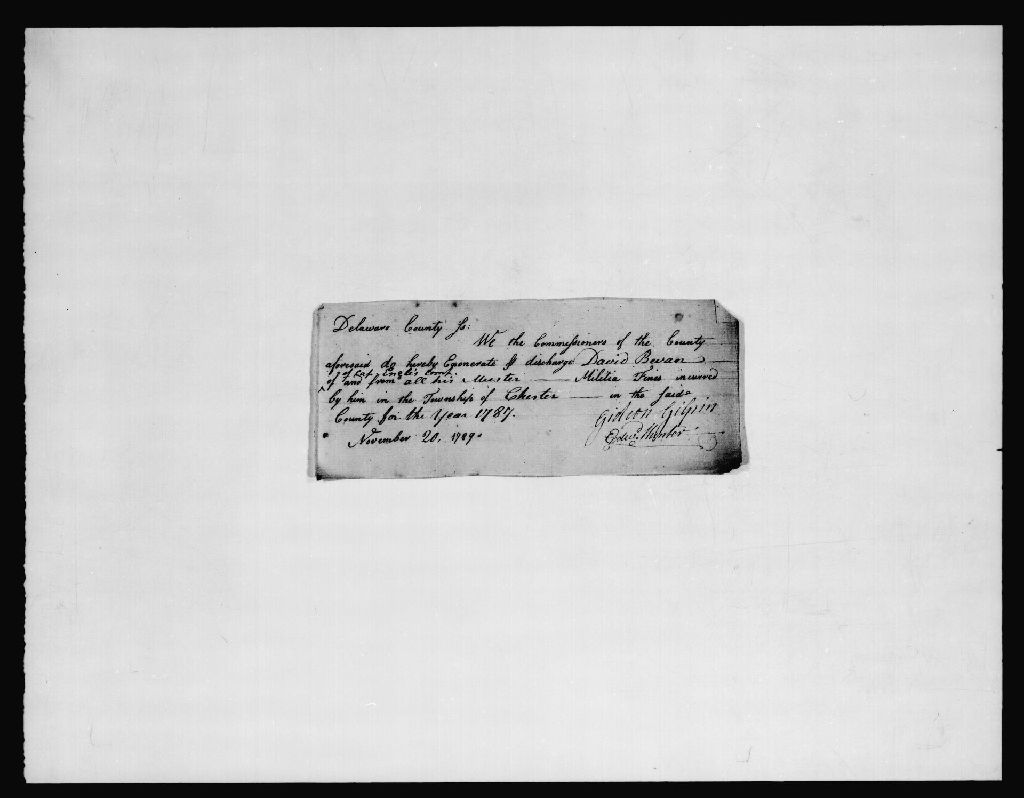 Delaware County Ss:
We the Commissioners of the County
aforesaid do hereby Exonerate & discharge David Bevan
of and from all his Muster Militia Fines incurred
by him in the Township of Chester in the said
County for the Year 1787.
Gidion Gilpin
November 20, 1789.
Edwd Hunter